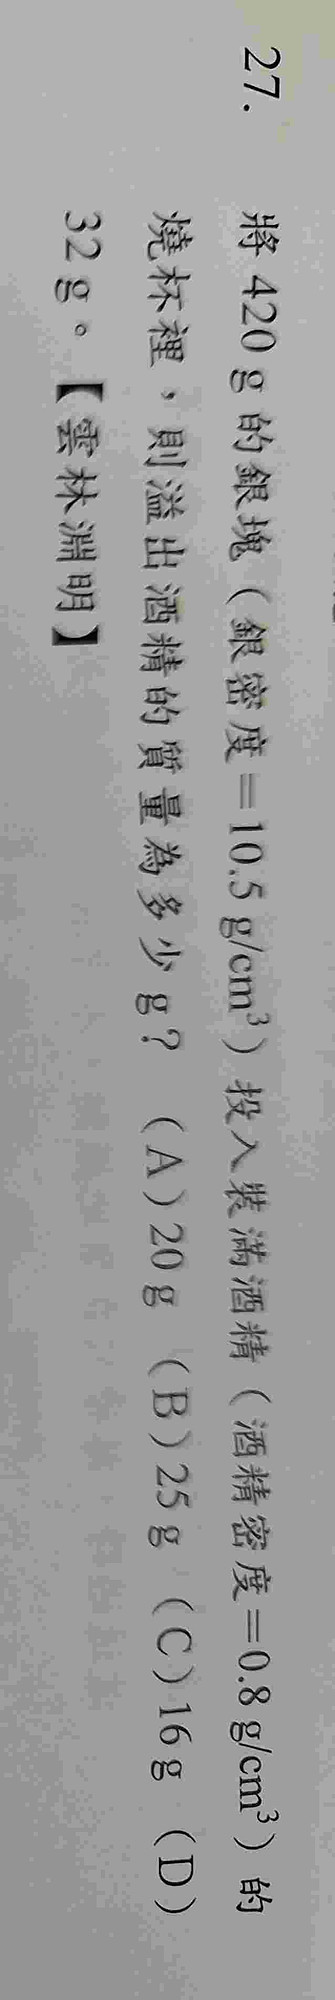 27. 將 420 g 的銀塊（銀密度=10.5 g/cm³）投入裝滿酒精（酒精密度=0.8 g/cm³）的
燒杯裡，則溢出酒精的質量為多少g？ （A）20g （B）25g （C）16g （D）
32 g。【雲林淵明】